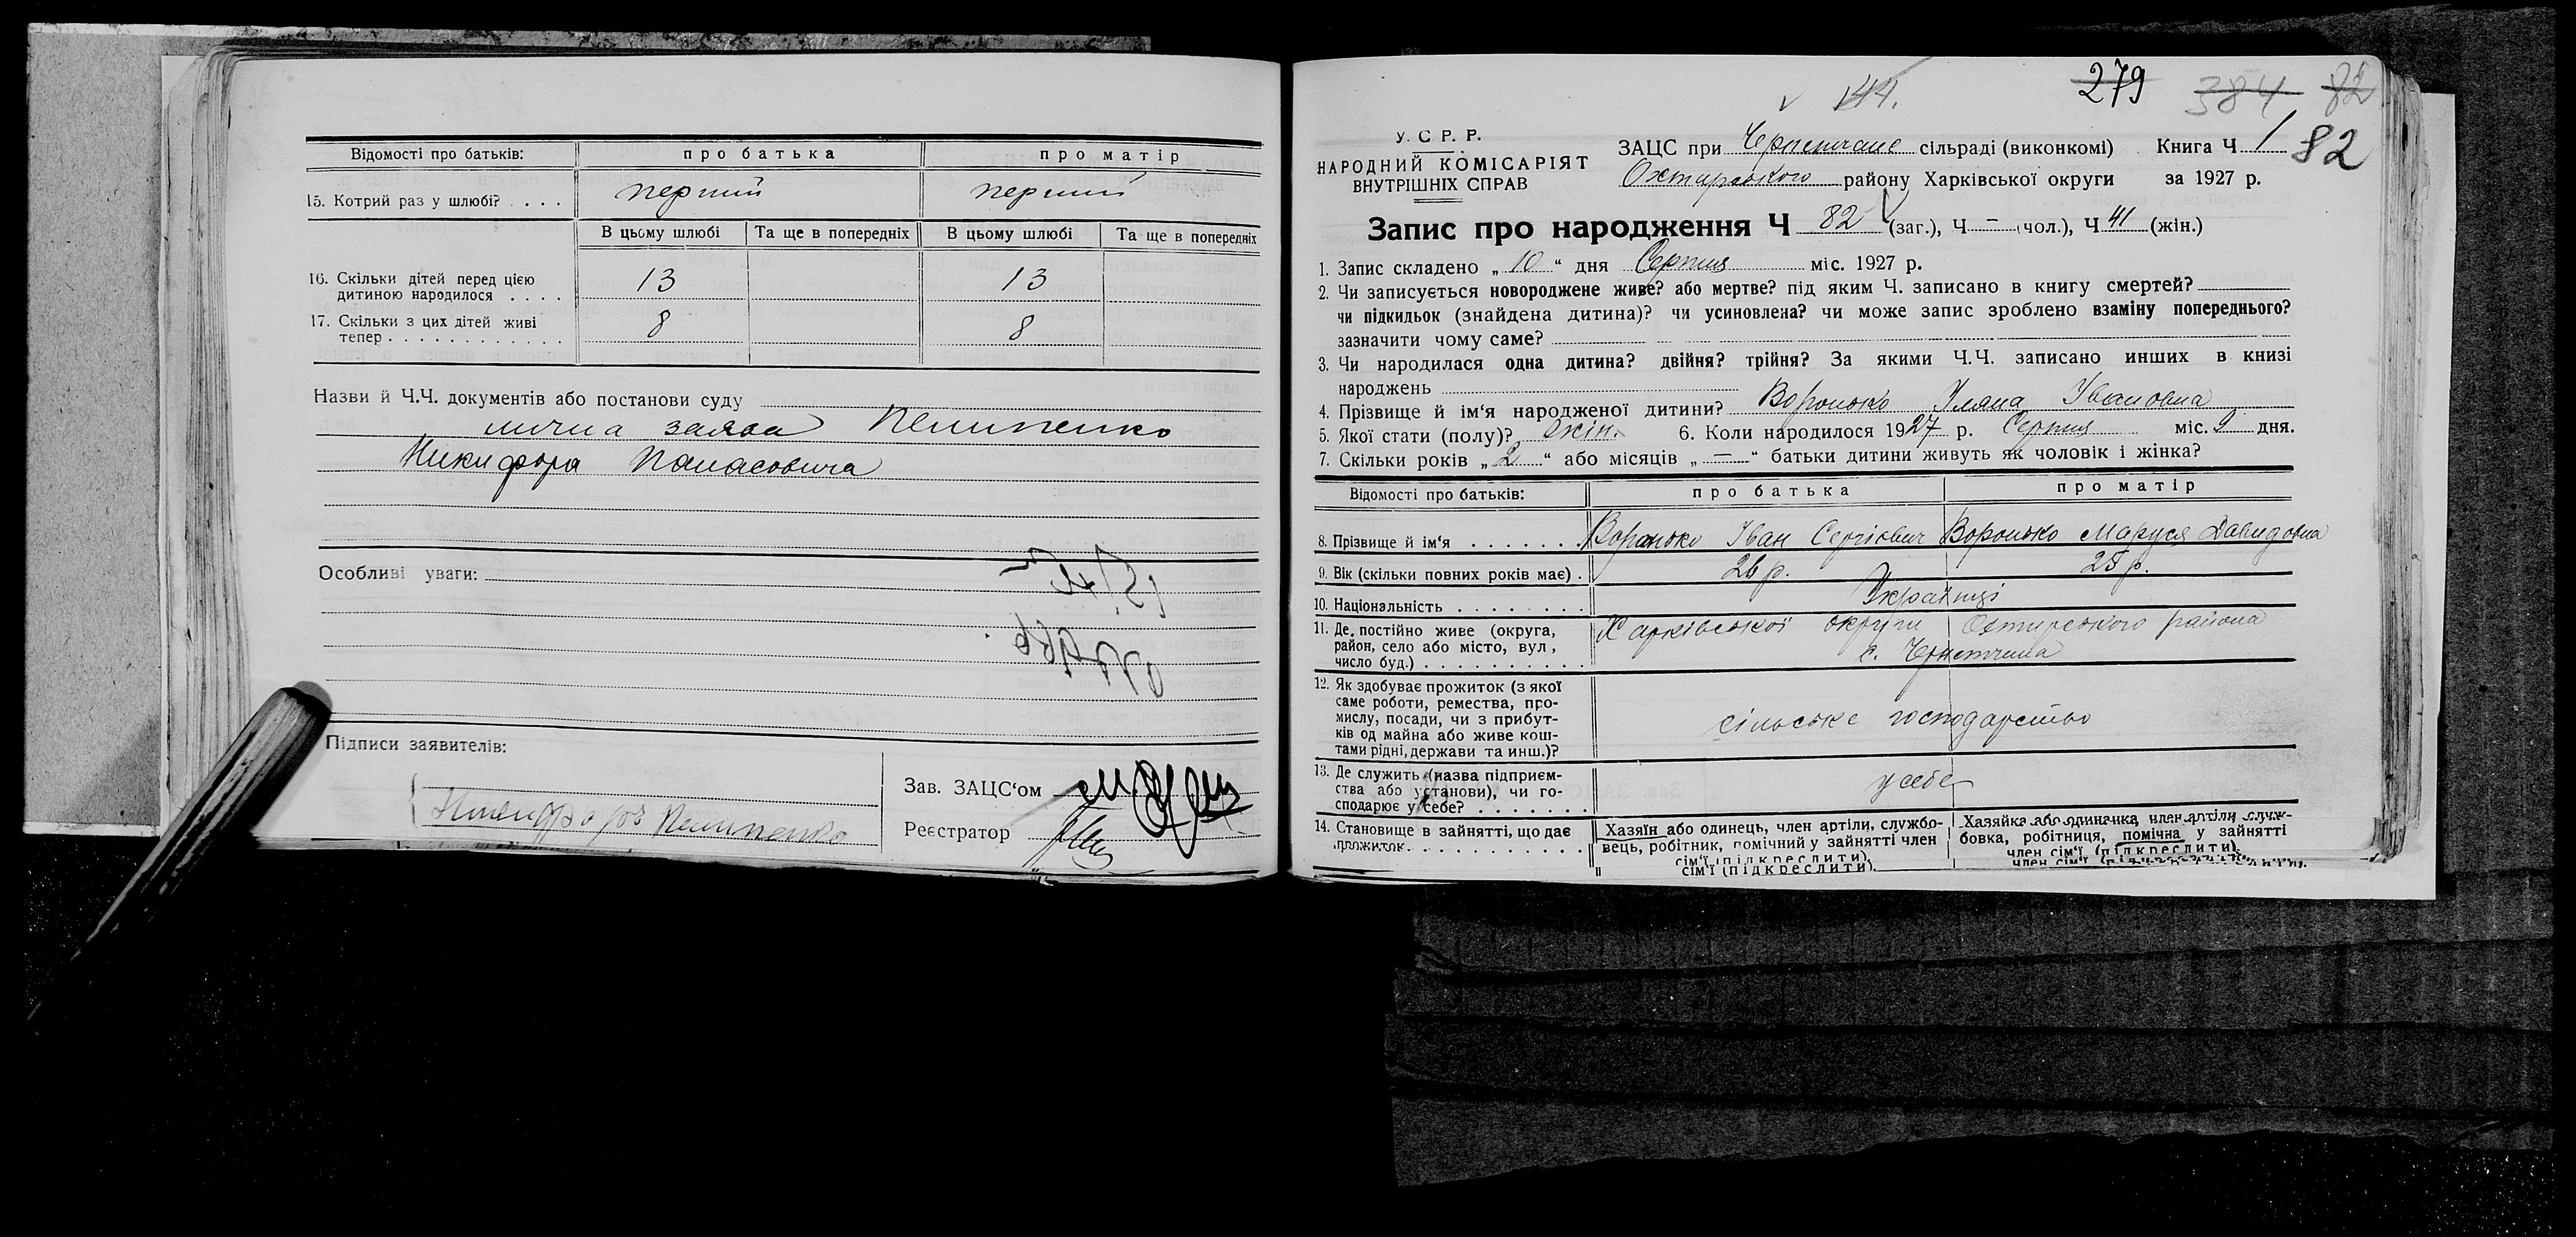 Відомості про батьків: про батька про матір
15. Котрий раз у шлюбі? . . . . перший перший
В цьому шлюбі Та ще в попередніх В цьому шлюбі Та ще в попередніх
16. Скільки дітей перед цією
дитиною народилося . . . . 13 13
17. Скільки з цих дітей живі
тепер . . . . . . . . . . . . 8 8
Назви й Ч.Ч. документів або постанови суду
лична заява Пелипенко
Никифора Панасовича
Особливі уваги:
Підписи заявителів:
Пелипенко
Зав. ЗАЦС‘ом
Реєстратор
144. 279 384 82
У. С Р. Р.
НАРОДНИЙ КОМІСАРІЯТ
ВНУТРІШНІХ СПРАВ
ЗАЦС при сільраді (виконкомі) Книга Ч 1 82
Охтирського району Харківської округи за 1927 р.
Запис про народження Ч 82 (заг.), Ч — (чол.), Ч 41 (жін.)
1. Запис складено „ 10 “ дня Серпня міс. 1927 р.
2. Чи записується новороджене живе? або мертве? під яким Ч. записано в книгу смертей?
чи підкидьок (знайдена дитина)? чи усиновлена? чи може запис зроблено взаміну попереднього?
зазначити чому саме?
3. Чи народилася одна дитина? двійня? трійня? За якими Ч.Ч. записано инших в книзі
народжень
4. Прізвище й ім‘я народженої дитини? Воронько Уляна Івановна
5. Якої стати (полу)? жін. 6. Коли народилося 1927 р. Серпня міс. 9 дня.
7. Скільки років „ 2 “ або місяців „ — “ батьки дитини живуть як чоловік і жінка?
Відомості про батьків: про батька про матір
8. Прізвище й ім‘я . . . . . . . Воронько Іван Сергієвич Воронько Маруся Давидовна
9. Вік (скільки повних років має) . 26 р. 25 р.
10. Національність . . . . . . . . Українці
11. Де постійно живе (округа,
район, село або місто, вул,
число буд.) . . . . . . . . . . Харківської округи Охтирського района
с.
12. Як здобуває прожиток (з якої
саме роботи, ремества, про-
мислу, посади, чи з прибут-
ків од майна або живе кош-
тами рідні, держави та инш.)? сільське господарство
13. Де служить (назва підприєм-
ства або установи), чи го-
сподарює у себе? . . . . . . . у себе
14. Становище в зайнятті, що дає
прожиток. . . . . . . . . . . .
Хазяїн або одинець, член артіли, службо-
вець, робітник, помічний у зайнятті член
сім‘ї (підкреслити).
Хазяйка або одиначка, член артіли, служ-
бовка, робітниця, помічна у зайнятті
член сім‘ї (підкреслити).